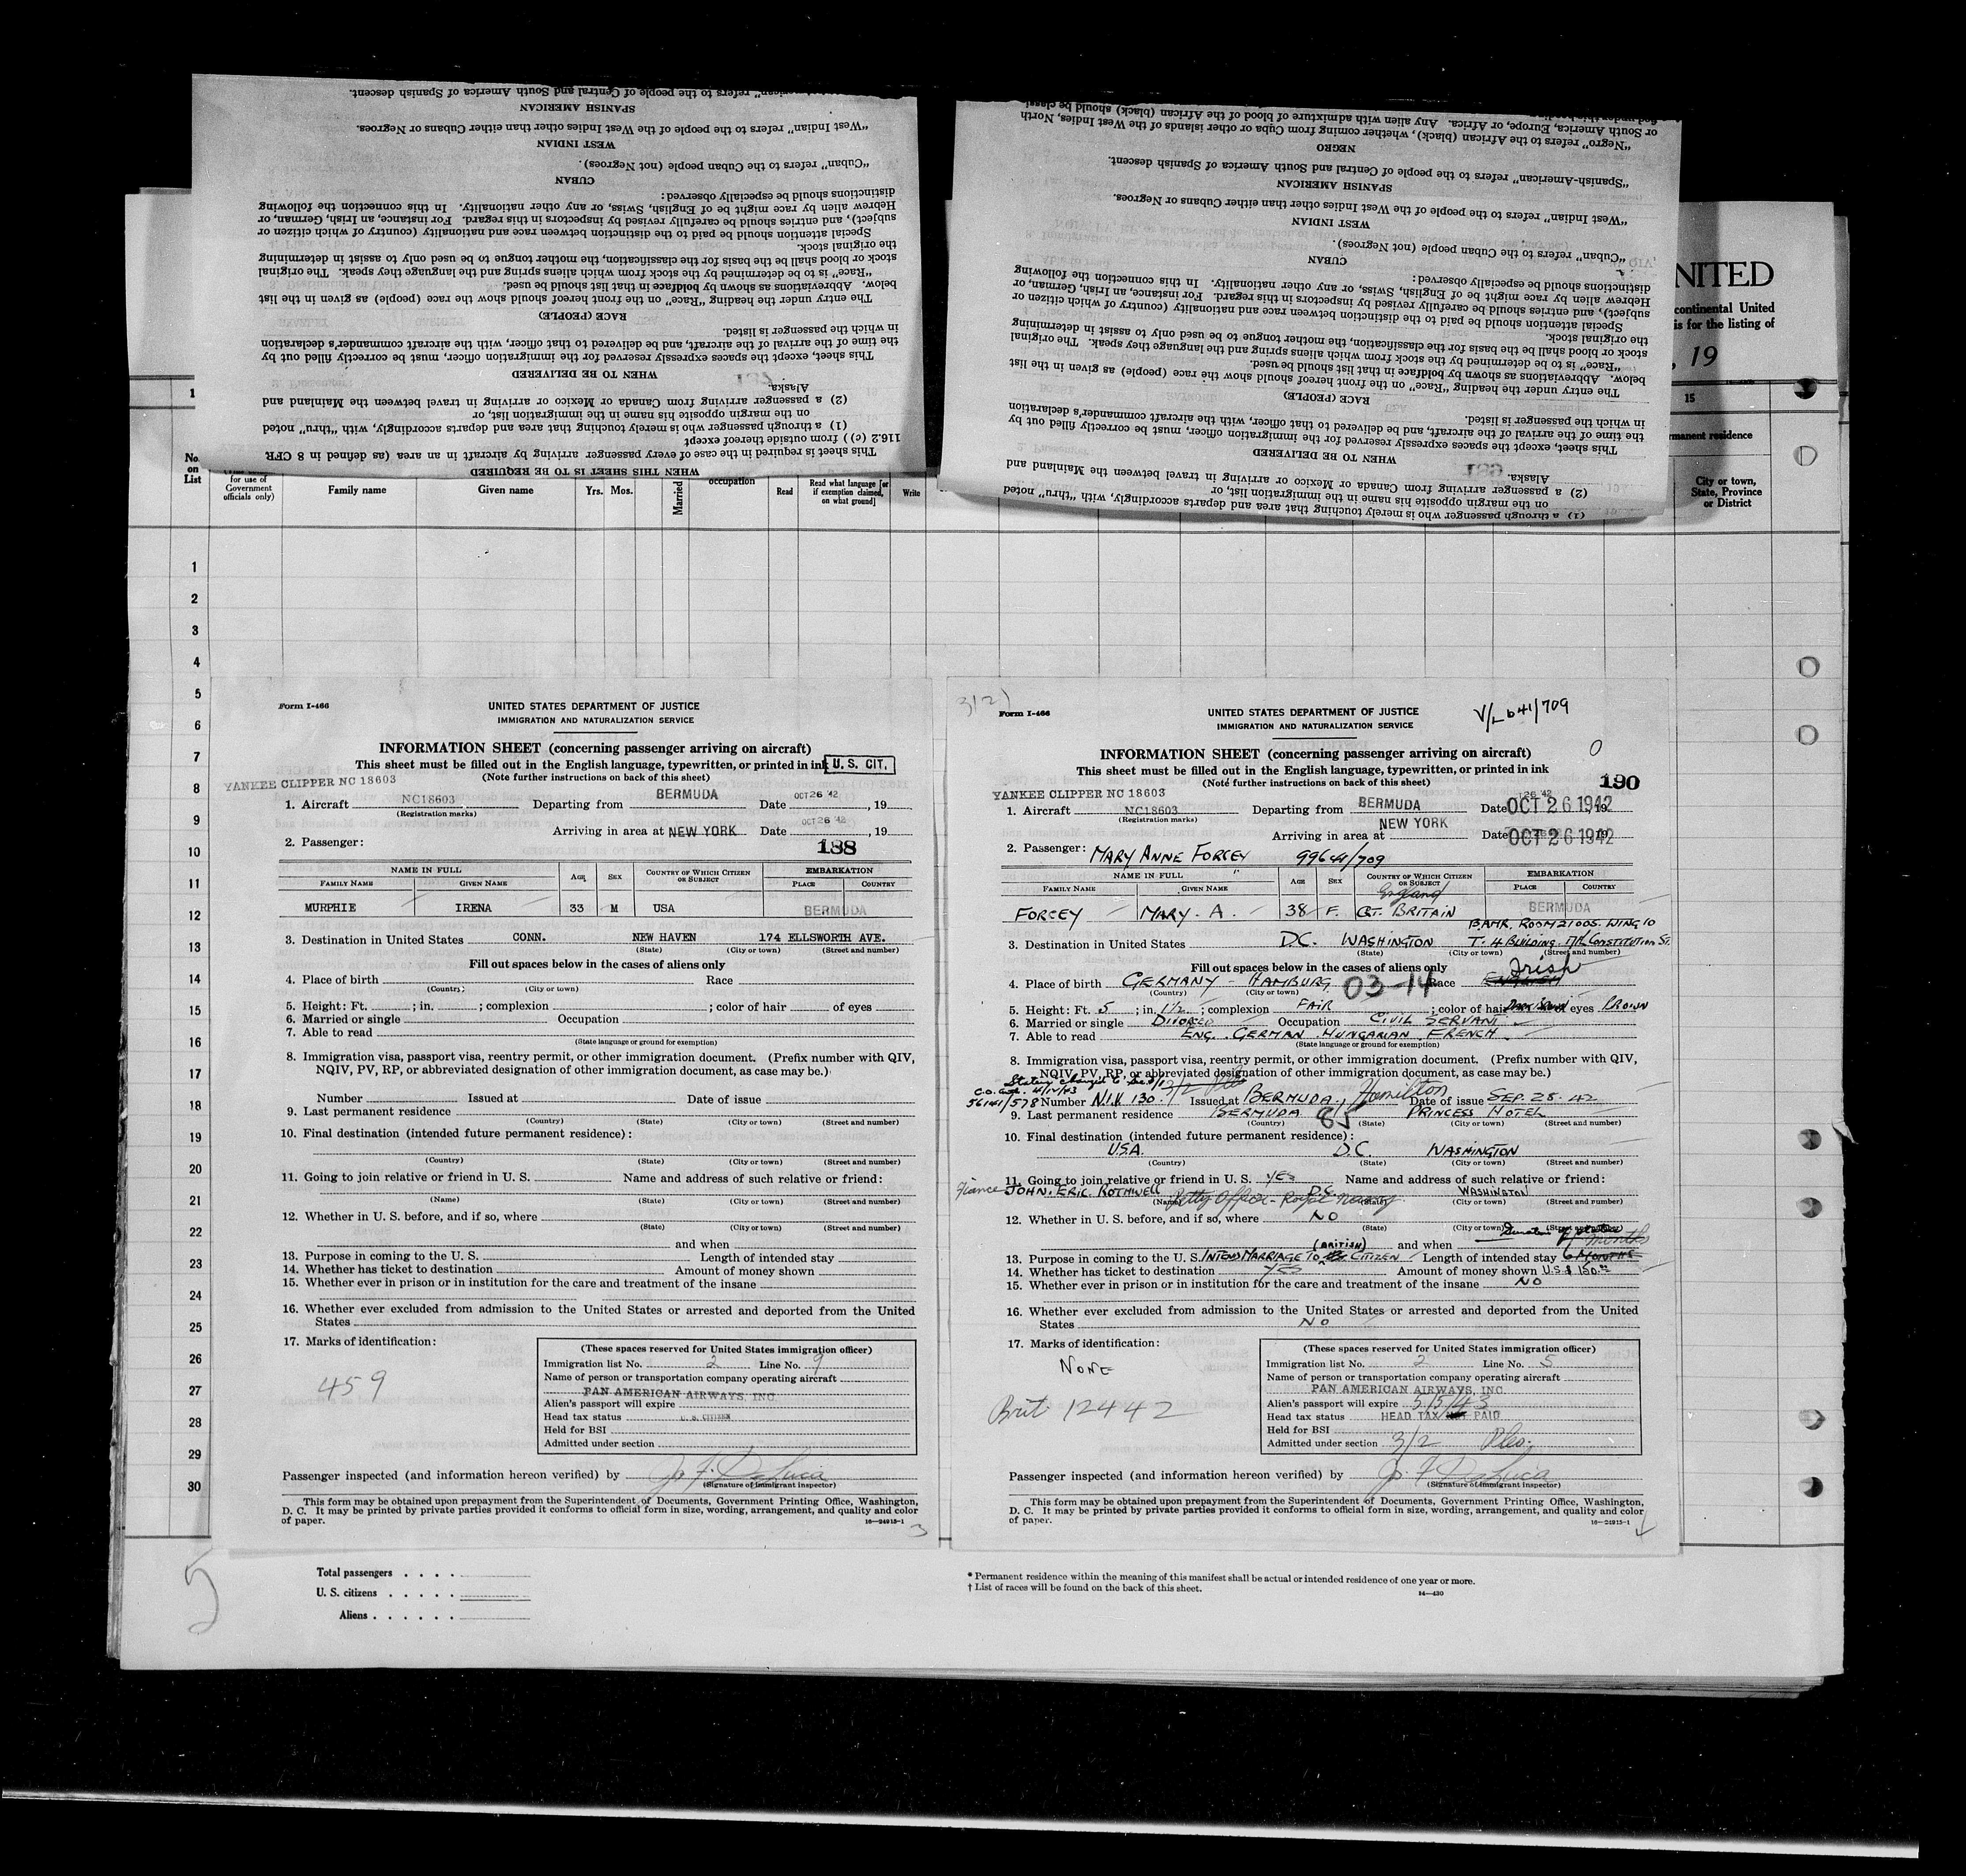 "Spanish-American" refers to the people of Central and South America of Spanish descent.
SPANISH AMERICAN
"West Indian" refers to the people of the West Indies other than either Cubans or Negroes.
WEST INDIAN
"Cuban" refers to the Cuban people (not Negroes).
CUBAN
distinctions should be especially observed:
Hebrew alien by race might be of English, Swiss, or any other nationality. In this connection the following
subject), and entries should be carefully revised by inspectors in this regard. For instance, an Irish, German, or
Special attention should be paid to the distinction between race and nationality (country of which citizen or
the original stock.
stock or blood shall be the basis for the classification, the mother tongue to be used only to assist in determining
"Race" is to be determined by the stock from which aliens spring and the language they speak. The original
below. Abbreviations as shown by boldface in that list should be used.
The entry under the heading "Race" on the front hereof should show the race (people) as given in the list
RACE (PEOPLE)
in which the passenger is listed.
the time of the arrival of the aircraft, and be delivered to that officer, with the aircraft commander's declaration
This sheet, except the spaces expressly reserved for the immigration officer, must be correctly filled out by
WHEN TO BE DELIVERED
Alaska.
(2) a passenger arriving from Canada or Mexico or arriving in travel between the Mainland and
on the margin opposite his name in the immigration list, or
(1) a through passenger who is merely touching that area and departs accordingly, with "thru" noted
116.2 (c)) from outside thereof except
This sheet is required in the case of every passenger arriving by aircraft in an area (as defined in 8 CFR
WHEN THIS SHEET IS TO BE REQUIRED
or South America, Europe, or Africa. Any alien with admixture of blood of the African (black) should be classi
"Negro" refers to the African (black), whether coming from Cuba or other islands of the West Indies, North
NEGRO
"Spanish-American" refers to the people of Central and South America of Spanish descent.
SPANISH AMERICAN
"West Indian" refers to the people of the West Indies other than either Cubans or Negroes.
WEST INDIAN
"Cuban" refers to the Cuban people (not Negroes).
CUBAN
distinctions should be especially observed:
Hebrew alien by race might be of English, Swiss, or any other nationality. In this connection the following
subject), and entries should be carefully revised by inspectors in this regard. For instance, an Irish, German, or
Special attention should be paid to the distinction between race and nationality (country of which citizen or
the original stock.
stock or blood shall be the basis for the classification, the mother tongue to be used only to assist in determining
"Race" is to be determined by the stock from which aliens spring and the language they speak. The original
below. Abbreviations as shown by boldface in that list should be used.
The entry under the heading "Race" on the front hereof should show the race (people) as given in the list
RACE (PEOPLE)
in which the passenger is listed.
the time of the arrival of the aircraft, and be delivered to that officer, with the aircraft commander's declaration
This sheet, except the spaces expressly reserved for the immigration officer, must be correctly filled out by
WHEN TO BE DELIVERED
Alaska.
(2) a passenger arriving from Canada or Mexico or arriving in travel between the Mainland and
on the margin opposite his name in the immigration list, or
(1) a through passenger who is merely touching that area and departs accordingly, with "thru" noted
NITED
continental United
is for the listing of
, 19
1 15
rmanent residence
No. on List
for use of Government officials only)
Family name Given name Yrs. Mos. Married occupation Read Read what language [or if exemption claimed, on what ground] Write
City or town, State, Province or District
1
2
3
4
5
6
7
8
9
10
11
12
13
14
15
16
17
18
19
20
21
22
23
24
25
26
27
28
29
30
Form I-466
UNITED STATES DEPARTMENT OF JUSTICE
IMMIGRATION AND NATURALIZATION SERVICE
INFORMATION SHEET (concerning passenger arriving on aircraft)
This sheet must be filled out in the English language, typewritten, or printed in ink U. S. CIT.
(Note further instructions on back of this sheet)
YANKEE CLIPPER NC 18603
1. Aircraft NC18603 Departing from BERMUDA Date OCT 26 '42, 19
(Registration marks)
Arriving in area at NEW YORK Date OCT 26 '42, 19
2. Passenger: 188
NAME IN FULL AGE SEX COUNTRY OF WHICH CITIZEN OR SUBJECT EMBARKATION
FAMILY NAME GIVEN NAME PLACE COUNTRY
MURPHIE IRENA 33 M USA BERMUDA
3. Destination in United States CONN. NEW HAVEN 174 ELLSWORTH AVE.
(State) (City or town) (Street and number)
Fill out spaces below in the cases of aliens only
4. Place of birth Race
(Country) (City or town)
5. Height: Ft. ; in. ; complexion ; color of hair of eyes
6. Married or single Occupation
7. Able to read
(State language or ground for exemption)
8. Immigration visa, passport visa, reentry permit, or other immigration document. (Prefix number with QIV,
NQIV, PV, RP, or abbreviated designation of other immigration document, as case may be.)
Number Issued at Date of issue
9. Last permanent residence
(Country) (State) (City or town) (Street and number)
10. Final destination (intended future permanent residence):
(Country) (State) (City or town) (Street and number)
11. Going to join relative or friend in U. S. Name and address of such relative or friend:
(Name) (State) (City or town) (Street and number)
12. Whether in U. S. before, and if so, where
(State) (City or town) (Street and number)
and when
13. Purpose in coming to the U. S. Length of intended stay
14. Whether has ticket to destination Amount of money shown
15. Whether ever in prison or in institution for the care and treatment of the insane
16. Whether ever excluded from admission to the United States or arrested and deported from the United
States
17. Marks of identification:
459
(These spaces reserved for United States immigration officer)
Immigration list No. 2 Line No. 9
Name of person or transportation company operating aircraft
PAN AMERICAN AIRWAYS, INC.
Alien's passport will expire
Head tax status U. S. CITIZEN
Held for BSI
Admitted under section
Passenger inspected (and information hereon verified) by Jo. F. DeLuca
(Signature of immigrant inspector)
This form may be obtained upon prepayment from the Superintendent of Documents, Government Printing Office, Washington,
D. C. It may be printed by private parties provided it conforms to official form in size, wording, arrangement, and quality and color
of paper. 16—24915-1
3
3/2)
Form I-466
V/L 641/709
UNITED STATES DEPARTMENT OF JUSTICE
IMMIGRATION AND NATURALIZATION SERVICE
INFORMATION SHEET (concerning passenger arriving on aircraft) 0
This sheet must be filled out in the English language, typewritten, or printed in ink
(Note further instructions on back of this sheet) 190
YANKEE CLIPPER NC 18603
1. Aircraft NC18603 Departing from BERMUDA Date OCT 26 1942
(Registration marks)
Arriving in area at NEW YORK Date OCT 26 1942
2. Passenger: MARY ANNE FORCEY 99641/709
NAME IN FULL AGE SEX COUNTRY OF WHICH CITIZEN OR SUBJECT EMBARKATION
FAMILY NAME GIVEN NAME PLACE COUNTRY
England
FORCEY MARY. A. 38 F. GT. BRITAIN BERMUDA
BAMR. ROOM 2100S. WING 10
3. Destination in United States D.C. WASHINGTON T. 4 BUILDING. 17th CONSTITUTION ST.
(State) (City or town) (Street and number)
Fill out spaces below in the cases of aliens only Irish
4. Place of birth GERMANY - HAMBURG 03-14 Race ENGLISH
(Country) (City or town)
5. Height: Ft. 5 ; in. 1 1/2 ; complexion FAIR ; color of hair DARK BROWN of eyes BROWN
6. Married or single DIVORCED Occupation CIVIL SERVANT
7. Able to read ENG. GERMAN. HUNGARIAN. FRENCH.
(State language or ground for exemption)
8. Immigration visa, passport visa, reentry permit, or other immigration document. (Prefix number with QIV,
NQIV, PV, RP, or abbreviated designation of other immigration document, as case may be.)
Status changed to Sec. 3/1 3/2
C.O. 4/12/43
56141/578 Number N.I.V. 130 Issued at BERMUDA, Hamilton Date of issue SEP. 28. 42
9. Last permanent residence BERMUDA 85 PRINCESS HOTEL
(Country) (State) (City or town) (Street and number)
10. Final destination (intended future permanent residence):
USA. D.C. WASHINGTON
(Country) (State) (City or town) (Street and number)
11. Going to join relative or friend in U. S. YES Name and address of such relative or friend:
Fiance JOHN. ERIC. ROTHWELL D.C. WASHINGTON
(Name) Petty Officer - Royal Navy (State) (City or town) (Street and number)
12. Whether in U. S. before, and if so, where NO
(State) (City or town) (Street and number)
(BRITISH) and when months
13. Purpose in coming to the U. S. INTEND MARRIAGE TO CITIZEN Length of intended stay 6 MONTHS
14. Whether has ticket to destination YES Amount of money shown U.S.$ 150.00
15. Whether ever in prison or in institution for the care and treatment of the insane NO
16. Whether ever excluded from admission to the United States or arrested and deported from the United
States NO
17. Marks of identification:
NONE
Brit 12442
(These spaces reserved for United States immigration officer)
Immigration list No. 2 Line No. 5
Name of person or transportation company operating aircraft
PAN AMERICAN AIRWAYS, INC.
Alien's passport will expire 5/5/43
Head tax status HEAD TAX PAID
Held for BSI
Admitted under section 3/2 Pleo.
Passenger inspected (and information hereon verified) by Jo. F. DeLuca
(Signature of immigrant inspector)
This form may be obtained upon prepayment from the Superintendent of Documents, Government Printing Office, Washington,
D. C. It may be printed by private parties provided it conforms to official form in size, wording, arrangement, and quality and color
of paper. 16—24915-1
5
Total passengers . . . .
U. S. citizens . . . . .
Aliens . . . . . .
* Permanent residence within the meaning of this manifest shall be actual or intended residence of one year or more.
† List of races will be found on the back of this sheet.
14—430